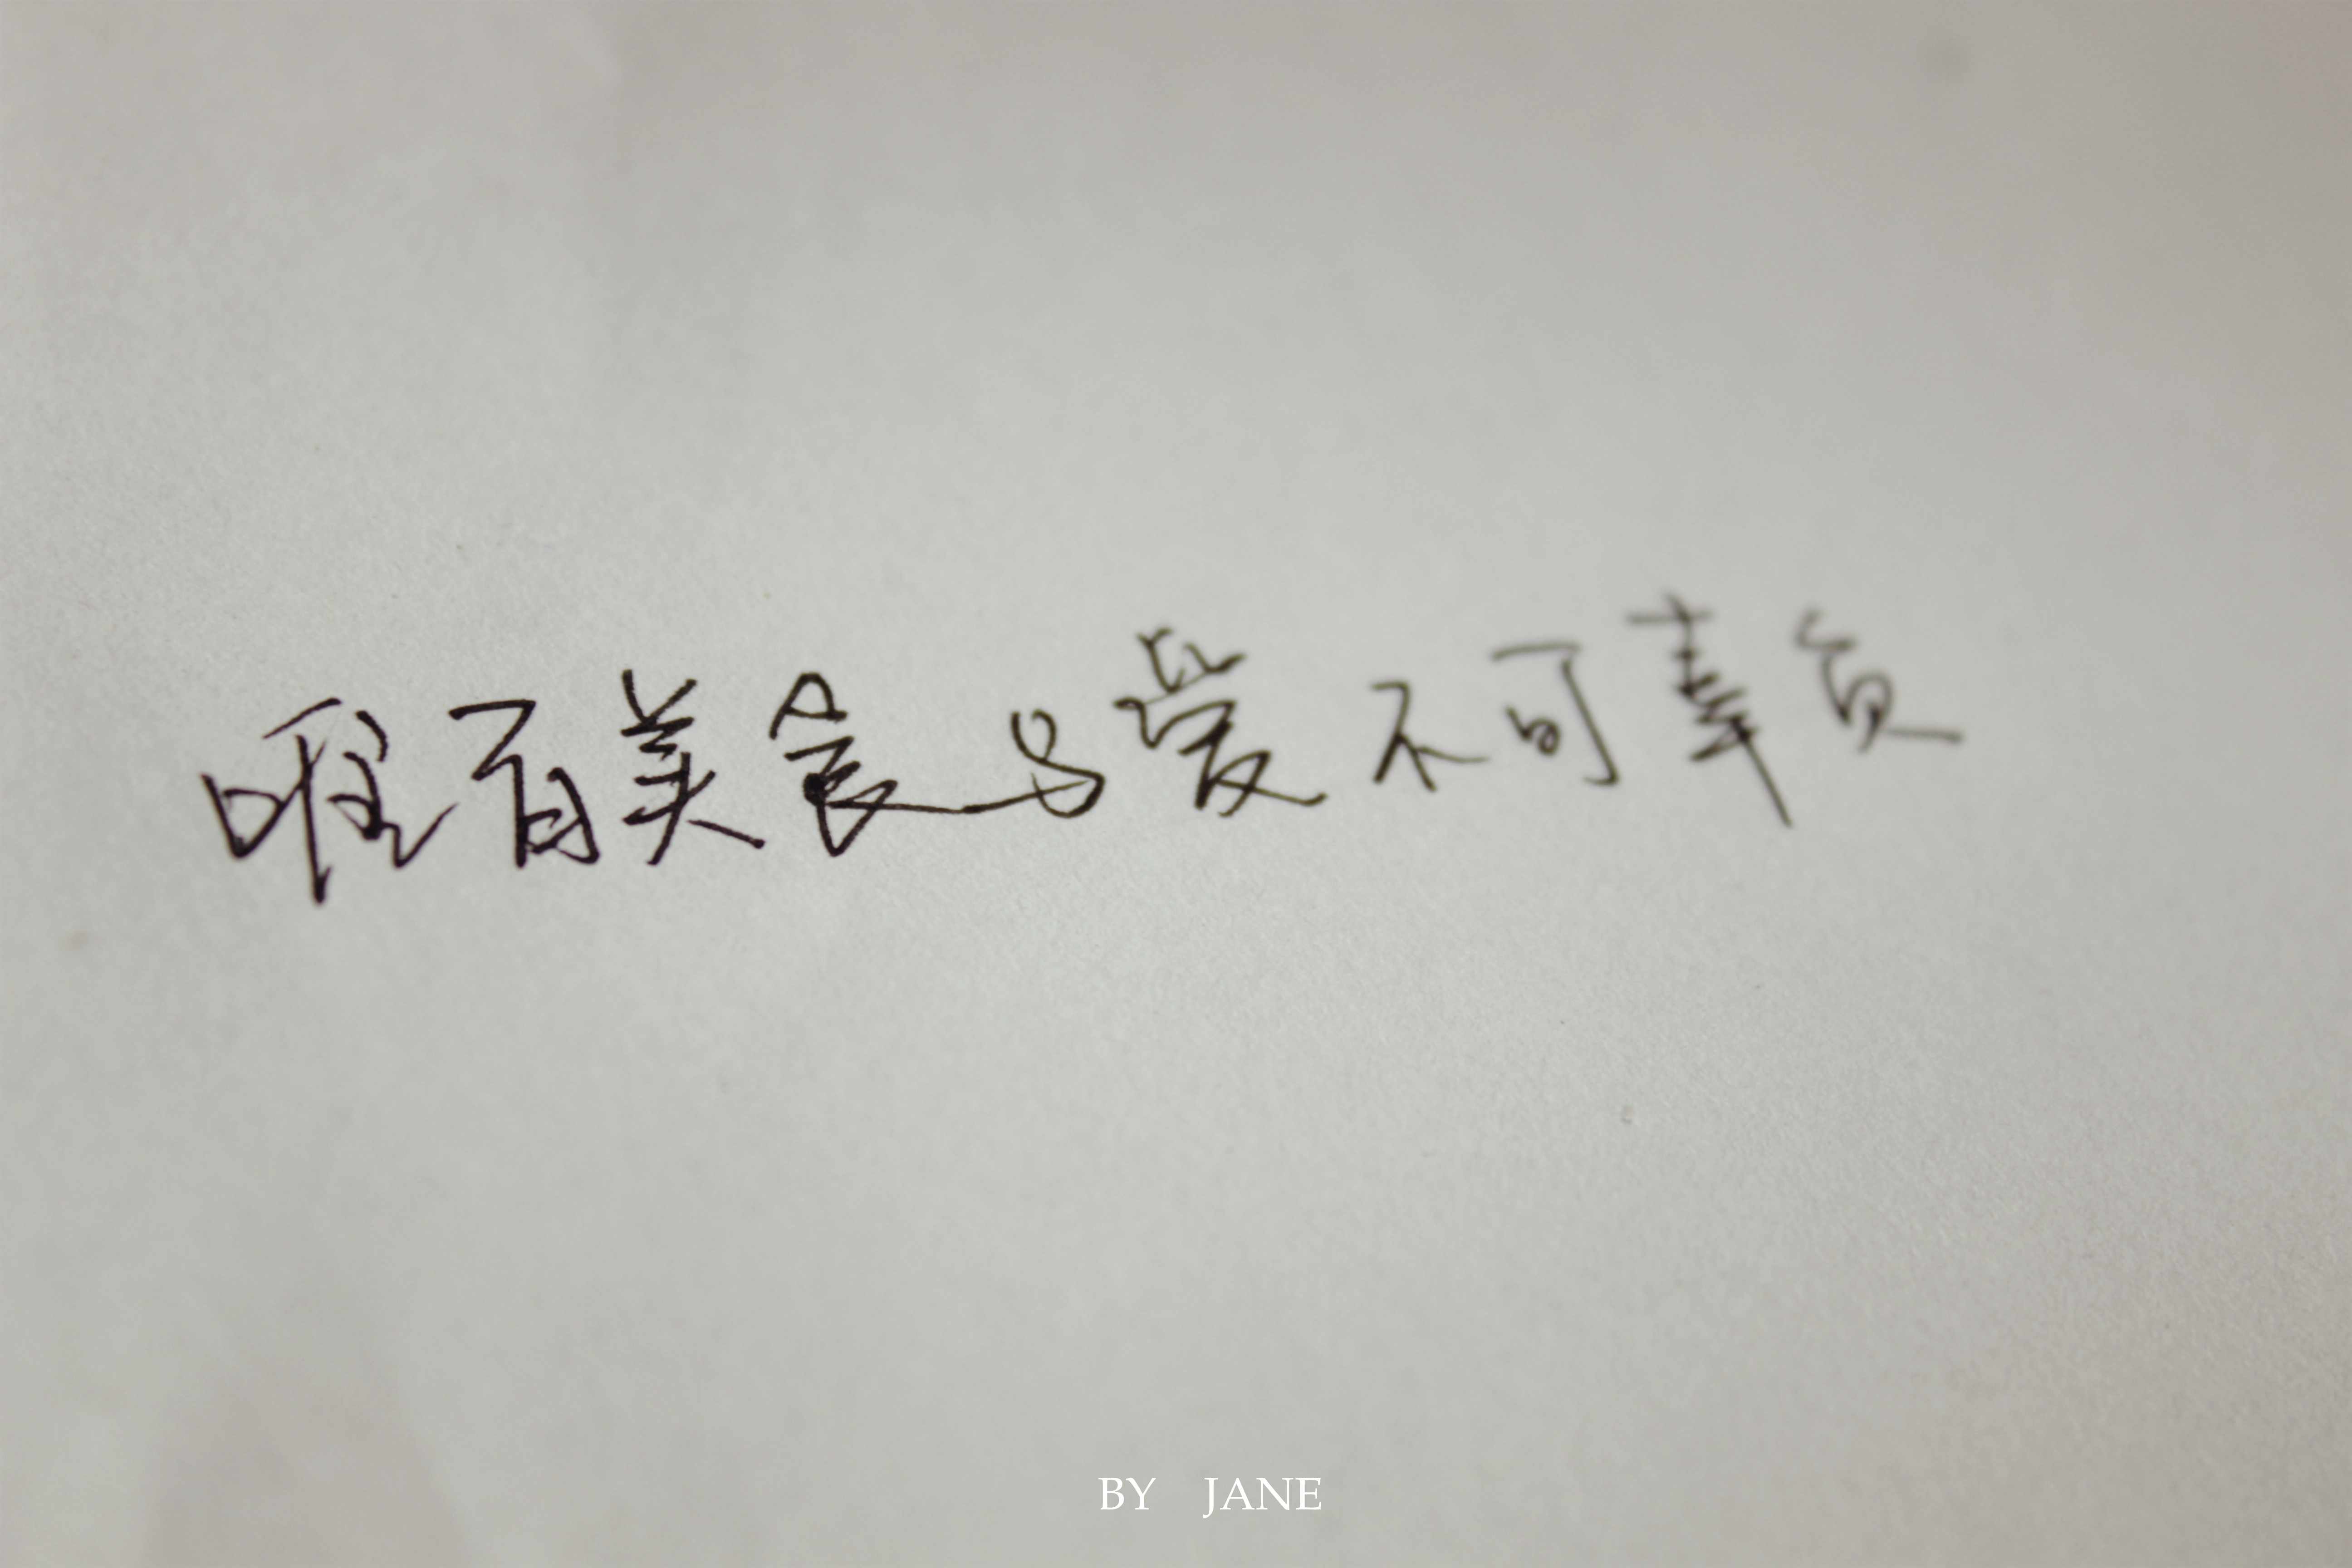 唯有美食与爱不可辜负
BY JANE